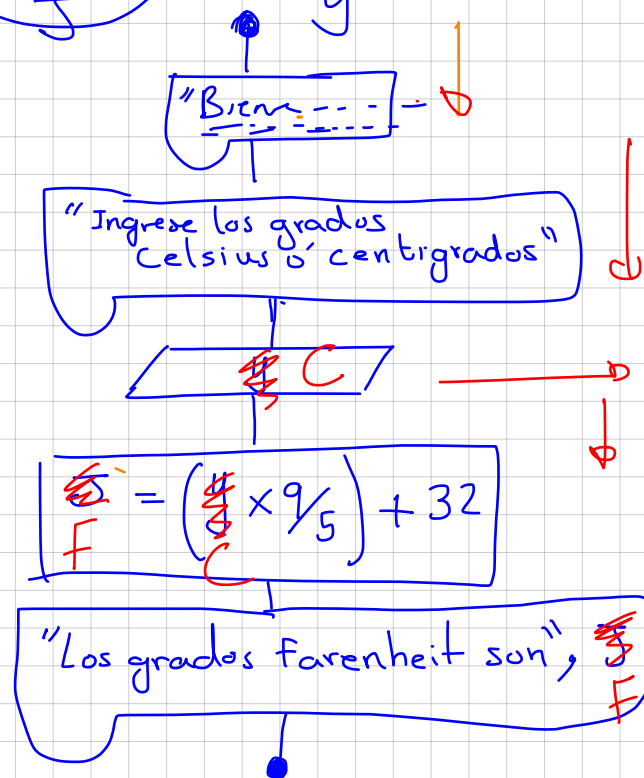 "Biene
"Ingrese los grados
Celsius ó centigrados"
C
F = (C x 9/5) + 32
"Los grados farenheit son", F